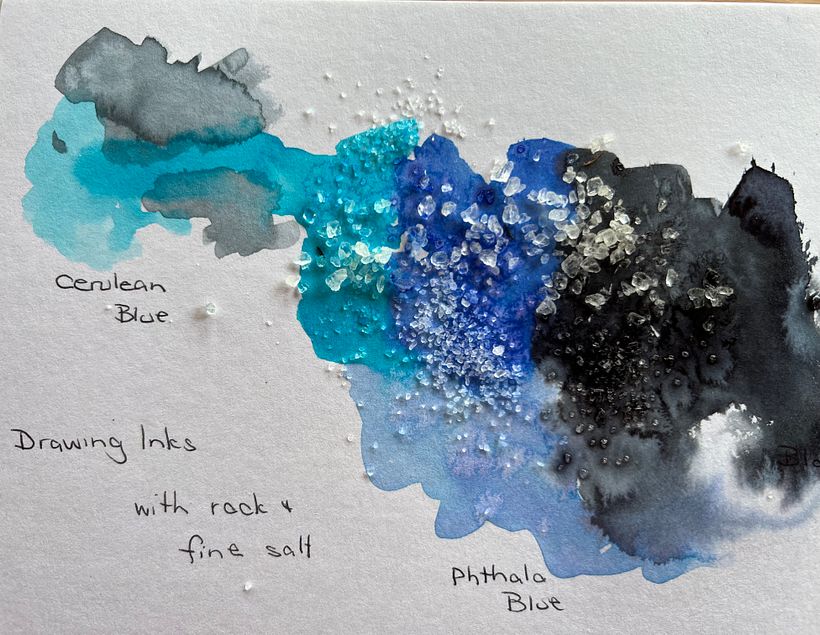 Cerulean
Blue
Drawing Inks
with rock &
fine salt
Phthalo
Blue